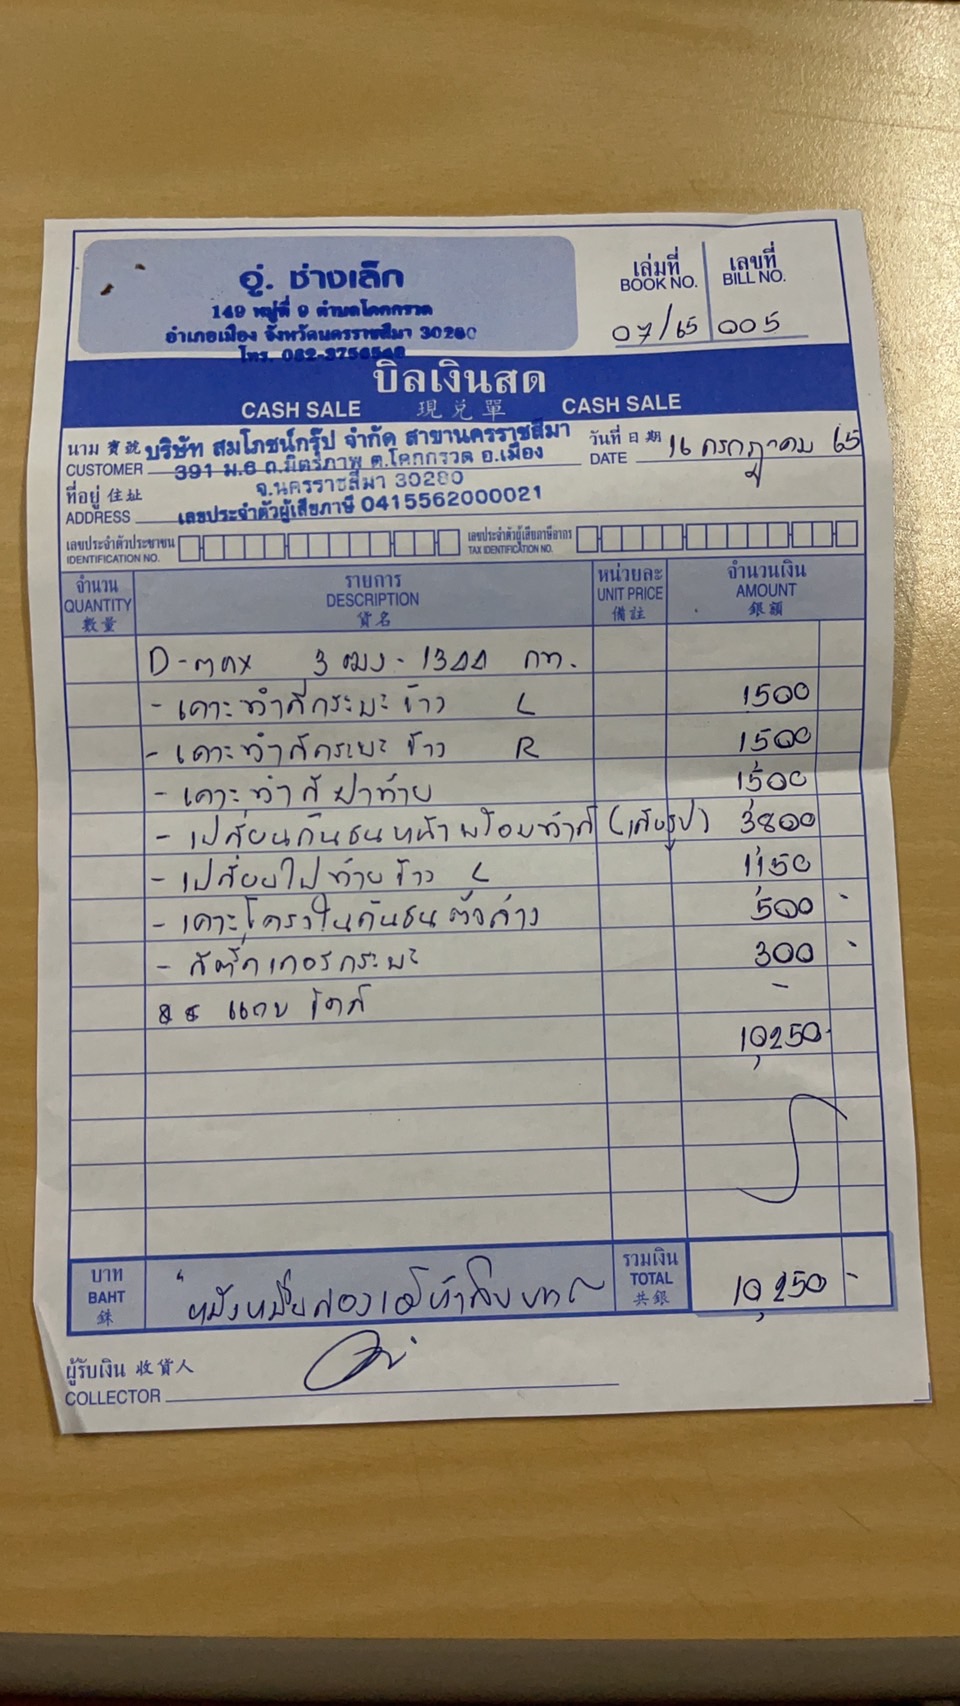 อู่. ช่างเล็ก
149 หมู่ที่ 9 ตำบลโคกกรวด
อำเภอเมือง จังหวัดนครราชสีมา 30280
โทร. 082-3756548
เล่มที่ เลขที่
BOOK NO. BILL NO.
07/65 005
บิลเงินสด
CASH SALE 現兑單 CASH SALE
นาม 寶號 บริษัท สมโภชน์กรุ๊ป จำกัด สาขานครราชสีมา วันที่ 日期 16 กรกฎาคม 65
CUSTOMER 391 ม.6 ถ.มิตรภาพ ต.โคกกรวด อ.เมือง DATE
ที่อยู่ 住址 จ.นครราชสีมา 30280
ADDRESS เลขประจำตัวผู้เสียภาษี 0415562000021
เลขประจำตัวประชาชน เลขประจำตัวผู้เสียภาษีอากร
IDENTIFICATION NO. TAX IDENTIFICATION NO.
จำนวน รายการ หน่วยละ จำนวนเงิน
QUANTITY DESCRIPTION UNIT PRICE AMOUNT
數量 貨名 備註 銀額
D-max 3 กท.
- เคาะทำสีกระบะข้าง L 1500
- เคาะทำสีกระบะข้าง R 1500
- เคาะทำสีฝาท้าย 1500
- เปลี่ยนกันชนหน้าพร้อมทำสี 3800
- เปลี่ยนไฟท้ายข้าง L 1150
- เคาะโครงในกันชนตัวล่าง 500 -
- สติ๊กเกอร์กระบะ 300 -
-
10,250.
บาท รวมเงิน
BAHT "หนึ่งหมื่นสองร้อยห้าสิบบาท TOTAL 10,250 -
銖 共銀
ผู้รับเงิน 收貨人
COLLECTOR